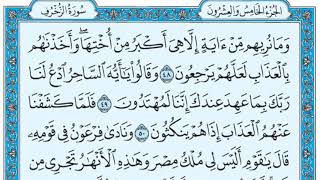 الجزء الخامس والعشرون سورة الزخرف
وَمَا نُرِيهِم مِّنْ ءَايَةٍ إِلَّا هِيَ أَكْبَرُ مِنْ أُخْتِهَا وَأَخَذْنَاهُم
بِالْعَذَابِ لَعَلَّهُمْ يَرْجِعُونَ ٤٨ وَقَالُوا يَا أَيُّهَ السَّاحِرُ ادْعُ لَنَا
رَبَّكَ بِمَا عَهِدَ عِندَكَ إِنَّنَا لَمُهْتَدُونَ ٤٩ فَلَمَّا كَشَفْنَا
عَنْهُمُ الْعَذَابَ إِذَا هُمْ يَنكُثُونَ ٥٠ وَنَادَى فِرْعَوْنُ فِي قَوْمِهِ
قَالَ يَاقَوْمِ أَلَيْسَ لِي مُلْكُ مِصْرَ وَهَذِهِ الْأَنْهَارُ تَجْرِي مِن